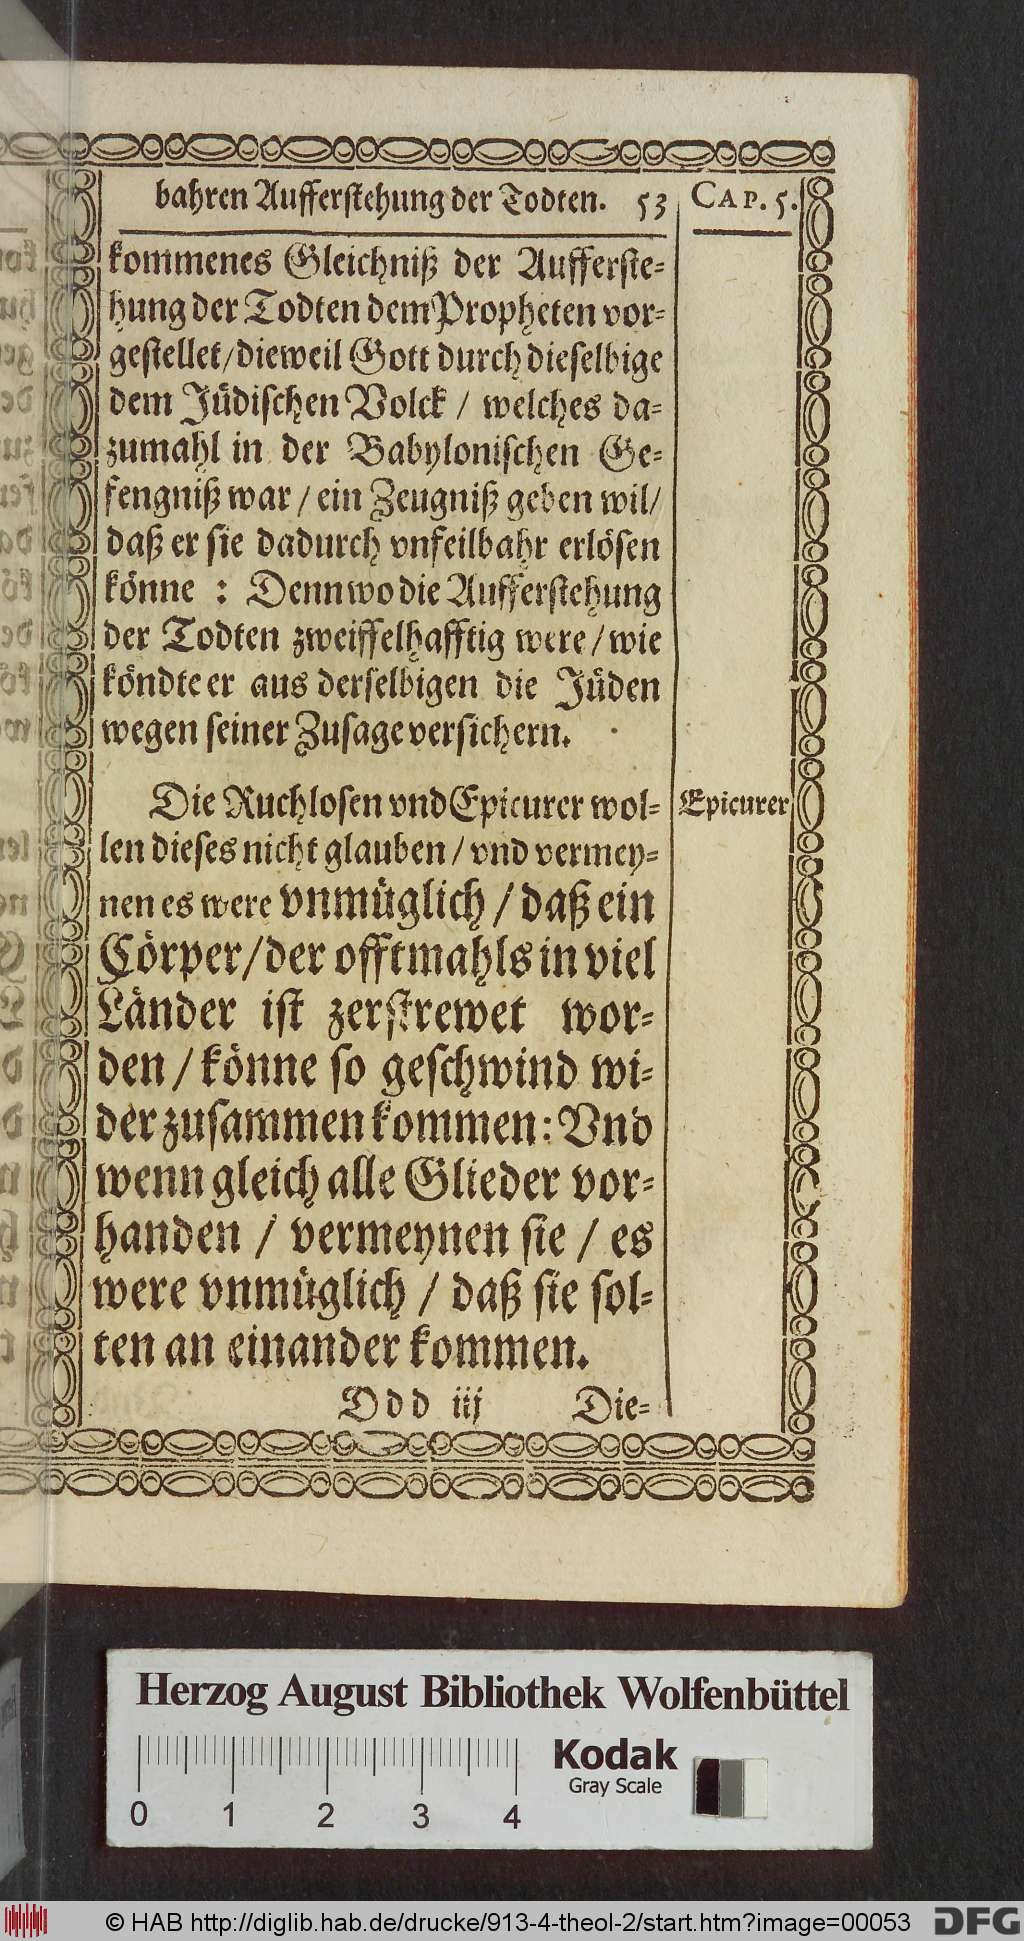 bahren Aufferstehung der Todten. 53 CAP. 5.
kommenes Gleichniß der Aufferste-
hung der Todten dem Propheten vor-
gestellet/dieweil Gott durch dieselbige
dem Jüdischen Volck / welches da-
zumahl in der Babylonischen Ge-
fengniß war / ein Zeugniß geben wil/
daß er sie dadurch vnfeilbahr erlösen
könne : Denn wo die Aufferstehung
der Todten zweiffelhafftig were / wie
köndte er aus derselbigen die Jüden
wegen seiner Zusage versichern.
Die Ruchlosen vnd Epicurer wol-
Epicurer
len dieses nicht glauben / vnd vermey-
nen es were vnmüglich / daß ein
Cörper/der offtmahls in viel
Länder ist zerstrewet wor-
den / könne so geschwind wi-
der zusammen kommen: Vnd
wenn gleich alle Glieder vor-
handen / vermeynen sie / es
were vnmüglich / daß sie sol-
ten an einander kommen.
Ddd iij Die-
Herzog August Bibliothek Wolfenbüttel
Kodak
Gray Scale
0 1 2 3 4
© HAB http://diglib.hab.de/drucke/913-4-theol-2/start.htm?image=00053
DFG